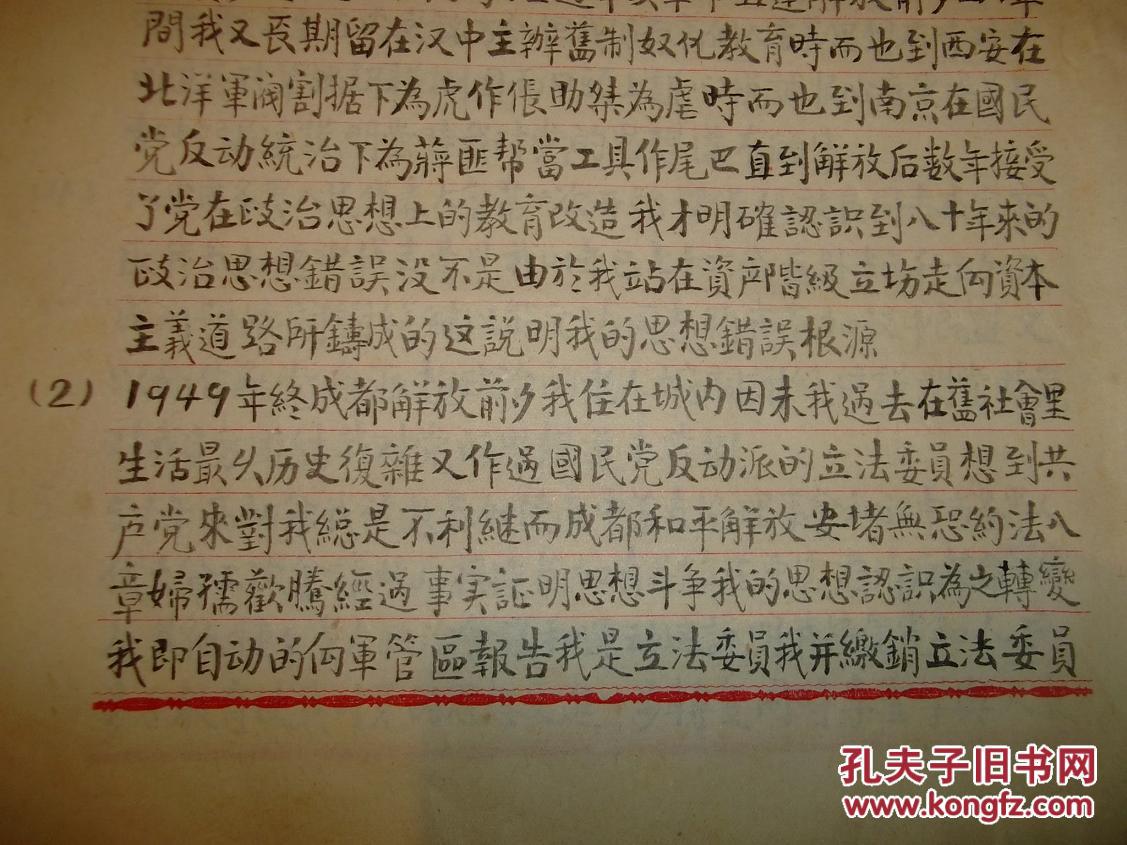 間我又長期留在汉中主辦舊制奴化教育時而也到西安在
北洋軍阀割据下為虎作伥助桀為虐時而也到南京在國民
党反动統治下為蔣匪帮當工具作尾巴直到解放后数年接受
了党在政治思想上的教育改造我才明確認識到八十年來的
政治思想錯誤没不是由於我站在資产階級立坊走向資本
主義道路所鑄成的这説明我的思想錯誤根源
(2) 1949年終成都解放前夕我住在城内因未我過去在舊社會里
生活最久历史復雜又作過國民党反动派的立法委員想到共
产党來對我総是不利継而成都和平解放安堵無恐約法八
章婦孺歡騰經過事实証明思想斗争我的思想認識為之轉變
我即自动的向軍管區報告我是立法委員我并繳銷立法委員
孔夫子旧书网
www.kongfz.com